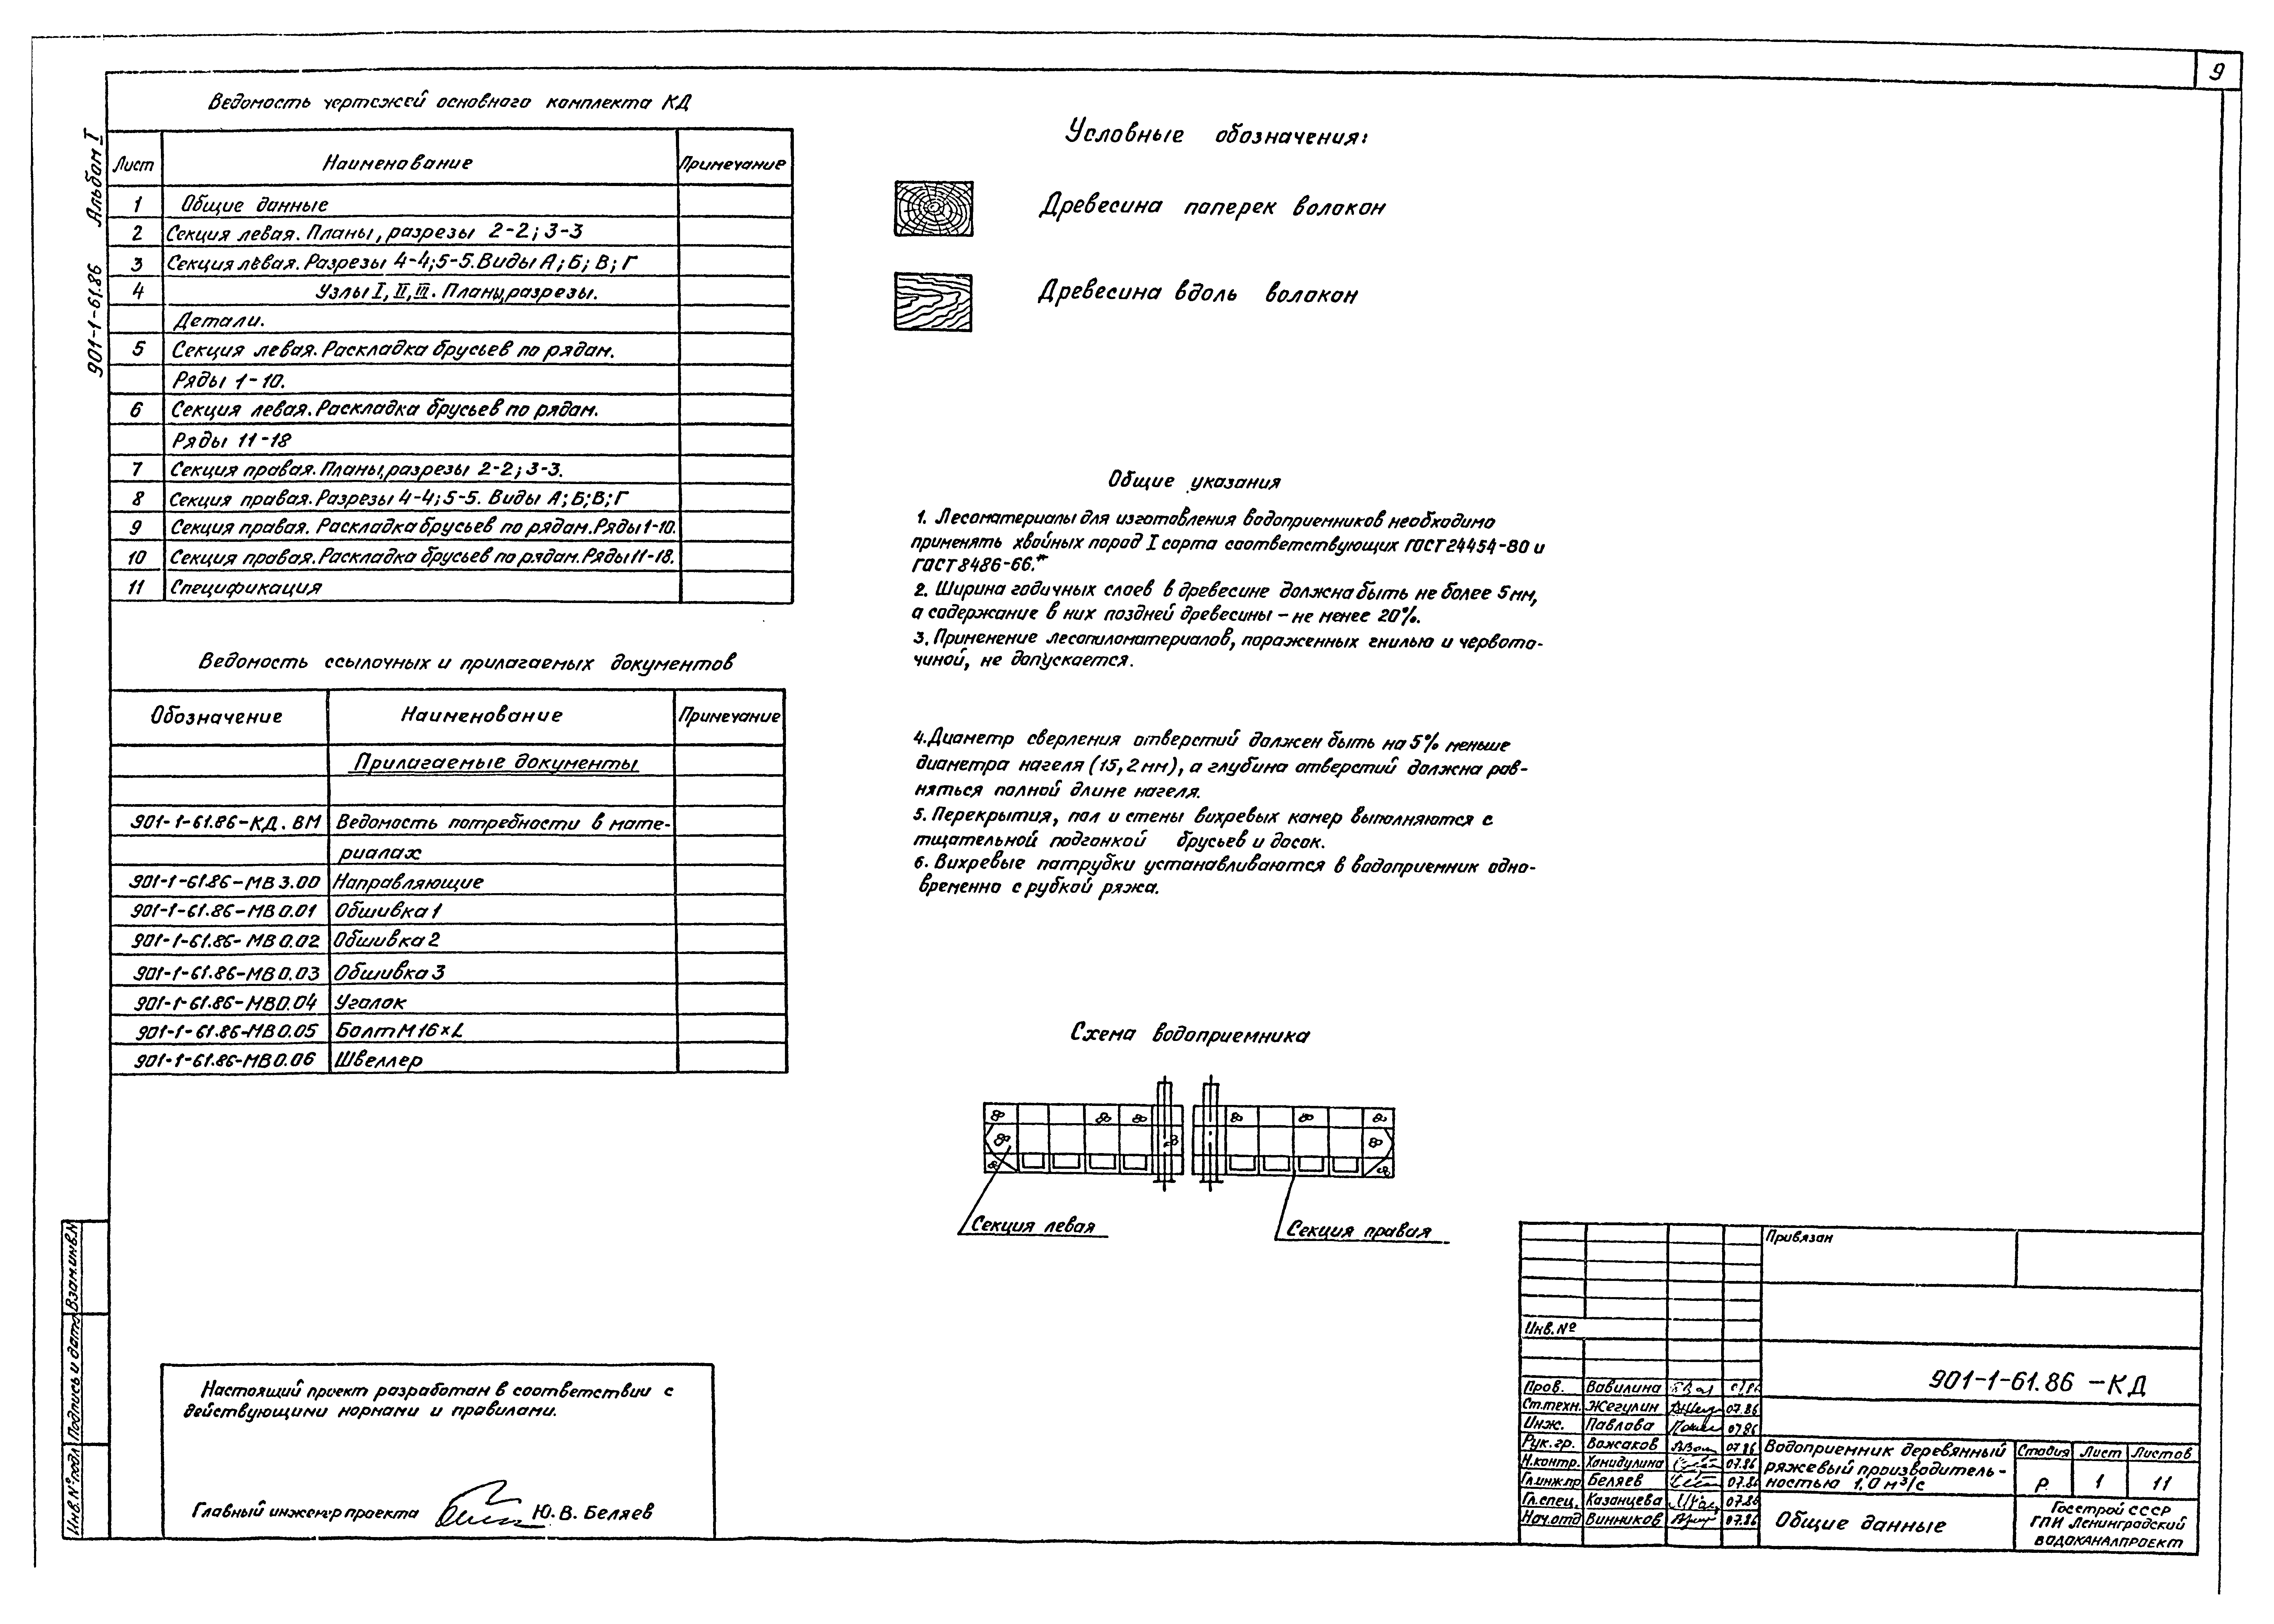 9
901-1-61.86 Альбом I
Ведомость чертежей основного комплекта КД
Лист Наименование Примечание
1 Общие данные
2 Секция левая. Планы, разрезы 2-2; 3-3
3 Секция левая. Разрезы 4-4; 5-5. Виды А; Б; В; Г
4 Узлы I, II, III. Планы, разрезы.
Детали.
5 Секция левая. Раскладка брусьев по рядам.
Ряды 1-10.
6 Секция левая. Раскладка брусьев по рядам.
Ряды 11-18
7 Секция правая. Планы, разрезы 2-2; 3-3.
8 Секция правая. Разрезы 4-4; 5-5. Виды А; Б; В; Г
9 Секция правая. Раскладка брусьев по рядам. Ряды 1-10.
10 Секция правая. Раскладка брусьев по рядам. Ряды 11-18.
11 Спецификация
Ведомость ссылочных и прилагаемых документов
Обозначение Наименование Примечание
Прилагаемые документы
901-1-61.86-КД. ВМ Ведомость потребности в мате-
риалах
901-1-61.86-МВ 3.00 Направляющие
901-1-61.86-МВ 0.01 Обшивка 1
901-1-61.86-МВ 0.02 Обшивка 2
901-1-61.86-МВ 0.03 Обшивка 3
901-1-61.86-МВ0.04 Уголок
901-1-61.86-МВ0.05 Болт М16×L
901-1-61.86-МВ0.06 Швеллер
Условные обозначения:
Древесина поперек волокон
Древесина вдоль волокон
Общие указания
1. Лесоматериалы для изготовления водоприемников необходимо
применять хвойных пород I сорта соответствующих ГОСТ 24454-80 и
ГОСТ 8486-66.*
2. Ширина годичных слоев в древесине должна быть не более 5мм,
а содержание в них поздней древесины – не менее 20%.
3. Применение лесопиломатериалов, пораженных гнилью и червото-
чиной, не допускается.
4. Диаметр сверления отверстий должен быть на 5% меньше
диаметра нагеля (15,2 мм), а глубина отверстий должна рав-
няться полной длине нагеля.
5. Перекрытия, пол и стены вихревых камер выполняются с
тщательной подгонкой брусьев и досок.
6. Вихревые патрубки устанавливаются в водоприемник одно-
временно с рубкой ряжа.
Схема водоприемника
Секция левая
Секция правая
Настоящий проект разработан в соответствии с
действующими нормами и правилами.
Главный инженер проекта Ю. В. Беляев
Инв.№ подл. Подпись и дата Взам.инв.№
Привязан
Инв. №
901-1-61.86 -КД
Пров. Вавилина
Ст.техн. Жегулин 07.86
Инж. Павлова 07.86
Рук. гр. Важсаков 07.86
Н.контр. Хамидулина 07.86
Гл.инж.пр Беляев 07.86
Гл.спец. Казанцева 07.86
Нач.отд Винников 07.86
Водоприемник деревянный
ряжевый производитель-
ностью 1,0 м³/с
Стадия Лист Листов
Р 1 11
Общие данные
Госстрой СССР
ГПИ Ленинградский
ВОДОКАНАЛПРОЕКТ